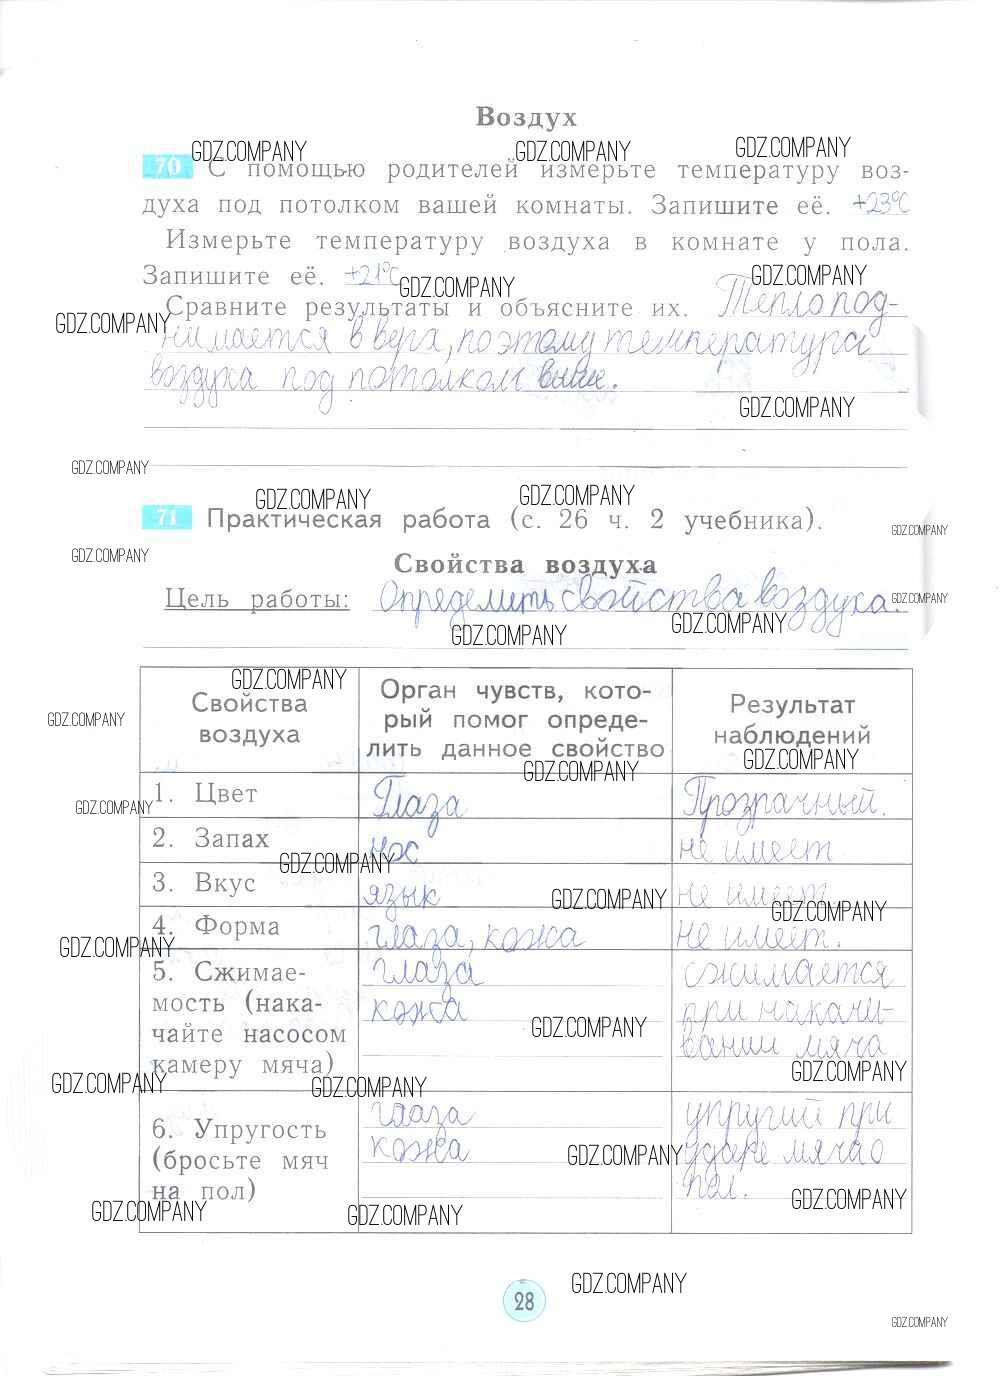 Воздух
GDZ.COMPANY GDZ.COMPANY GDZ.COMPANY
70 С помощью родителей измерьте температуру воз-
духа под потолком вашей комнаты. Запишите её. +23°С
Измерьте температуру воздуха в комнате у пола.
Запишите её. +21°С GDZ.COMPANY GDZ.COMPANY
Сравните результаты и объясните их. Тепло под-
GDZ.COMPANY
нимается вверх, поэтому температура
воздуха под потолком выше.
GDZ.COMPANY
GDZ.COMPANY
GDZ.COMPANY GDZ.COMPANY
71 Практическая работа (с. 26 ч. 2 учебника).
GDZ.COMPANY
GDZ.COMPANY
Свойства воздуха
Цель работы: Определить свойства воздуха.
GDZ.COMPANY
GDZ.COMPANY GDZ.COMPANY
GDZ.COMPANY
Свойства
воздуха
GDZ.COMPANY
Орган чувств, кото-
рый помог опреде-
лить данное свойство
Результат
наблюдений
GDZ.COMPANY GDZ.COMPANY
1. Цвет Глаза Прозрачный.
GDZ.COMPANY
2. Запах нос не имеет
GDZ.COMPANY
3. Вкус язык не имеет
GDZ.COMPANY GDZ.COMPANY
4. Форма глаза, кожа не имеет.
GDZ.COMPANY
5. Сжимае-
мость (нака-
чайте насосом
камеру мяча)
глаза
кожа
GDZ.COMPANY
сжимается
при накачи-
вании мяча
GDZ.COMPANY
GDZ.COMPANY GDZ.COMPANY
6. Упругость
(бросьте мяч
на пол)
глаза
кожа
GDZ.COMPANY
упругий при
ударе мяча о
пол.
GDZ.COMPANY
GDZ.COMPANY GDZ.COMPANY
GDZ.COMPANY
28
GDZ.COMPANY